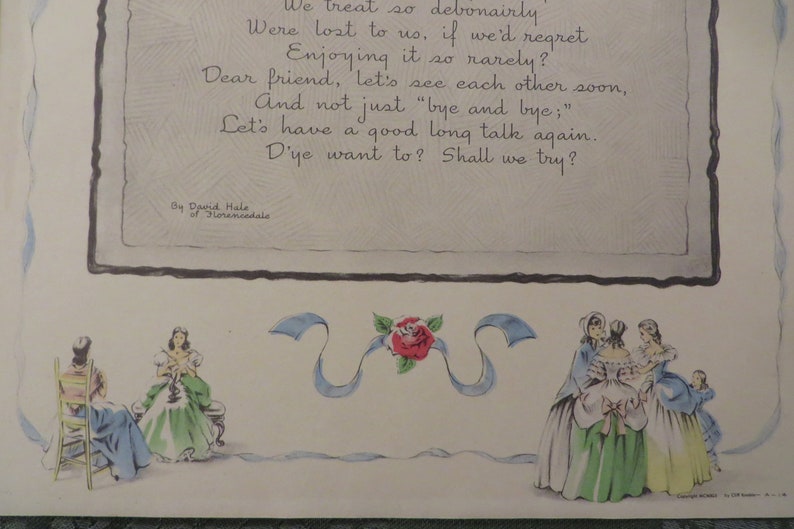 We treat so debonairly
Were lost to us, if we'd regret
Enjoying it so rarely?
Dear friend, let's see each other soon,
And not just "bye and bye;"
Let's have a good long talk again.
D'ye want to? Shall we try?
By David Hale
of Florencedale
Copyright by Cliff